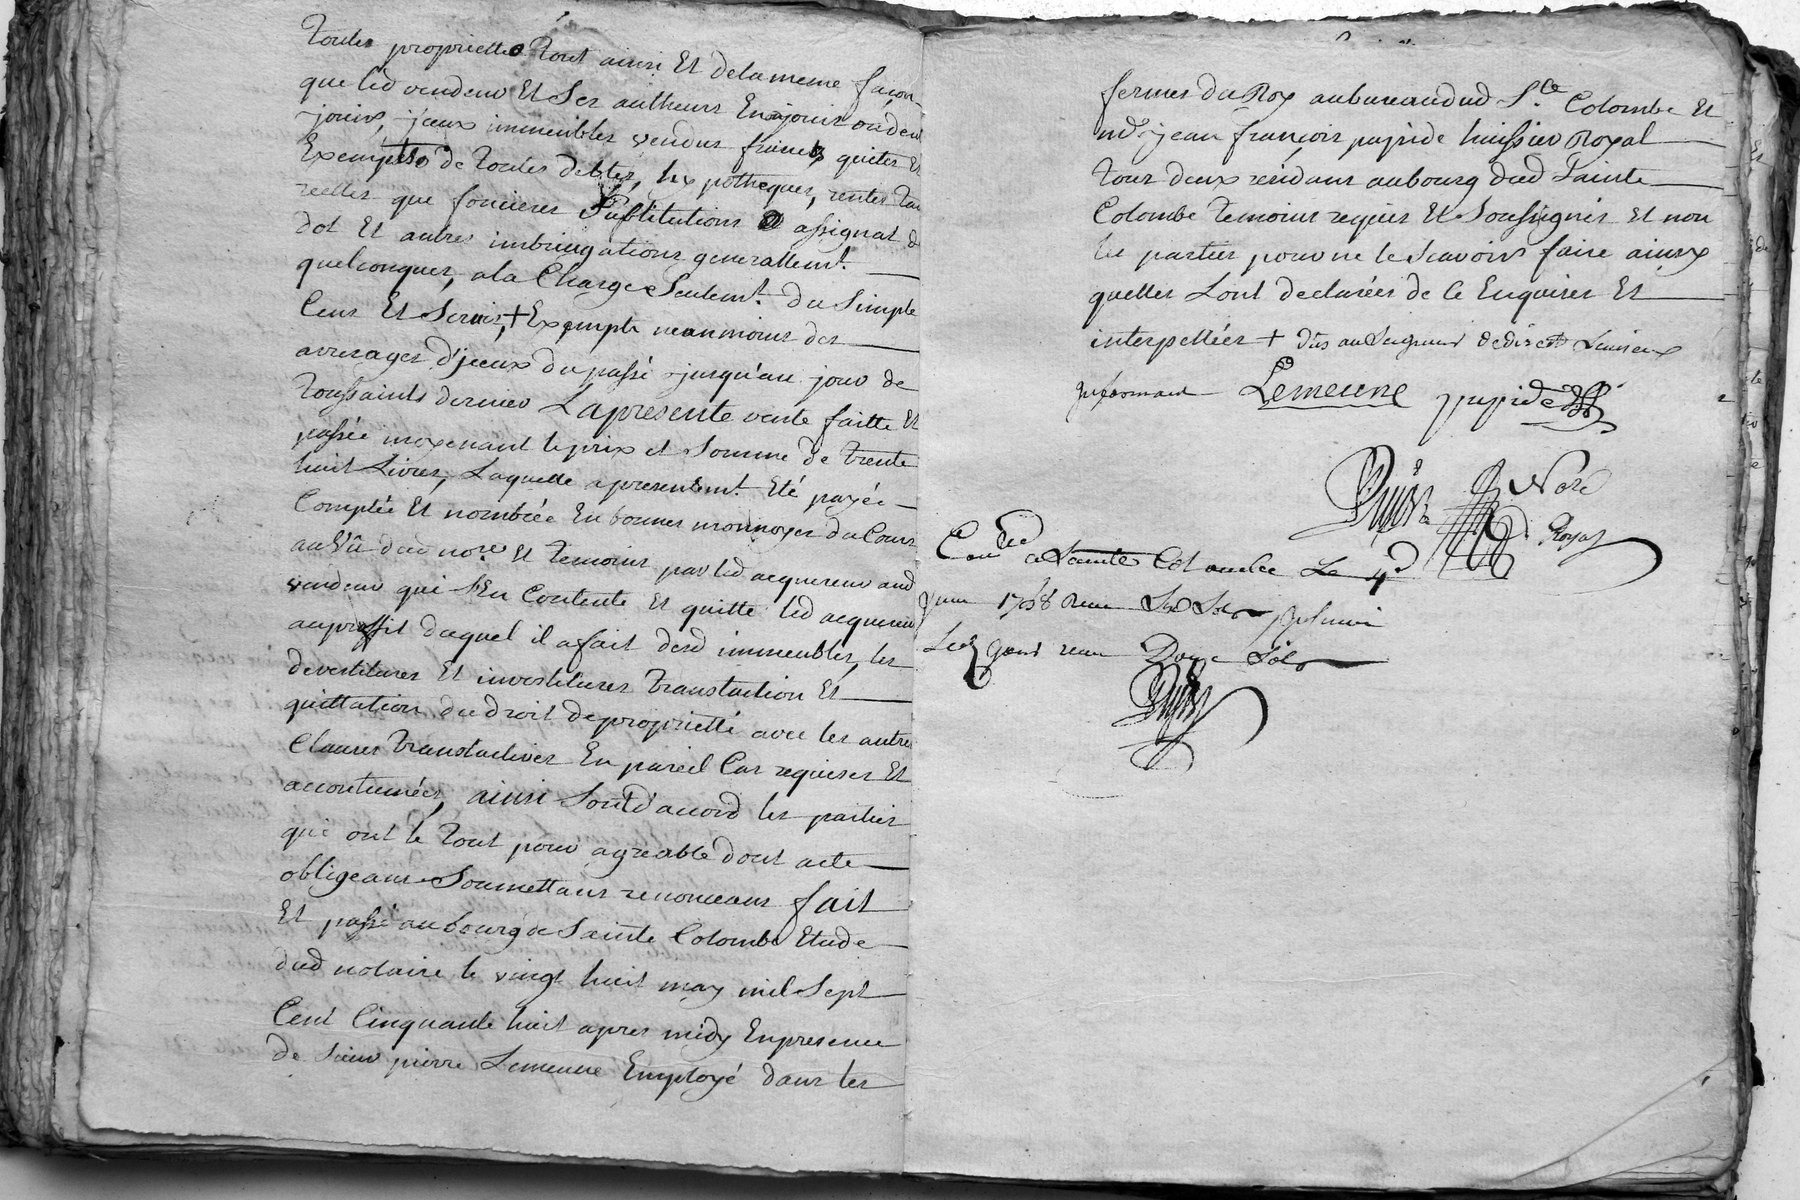 Toutes propriettes tout ainsi Et delameme façon
que led vendeur Et Ses autheurs Enojouis oudeu
jouir, jceux immeubles vendus francs, quites Et
Exempts de toutes debtes, hypotheques, rentes tan
reelles que foncieres Substitutions assignat de
dot Et autres imbriguations generallemt.
quelconques, ala Charge Seulemt. du Simple
Cens Et Servis, + Exempte neanmoins des
arrerages d'jceux du passé jusqu'au jour de
Toussaints dernier Lapresente vente faitte Et
passée moyenant leprix et Somme de trente
huit Livres, Laquelle apresentemt. Eté payée
Comptée Et nombrée En bonnes monnoyes du Cours
au Vû dud nore Et temoins par led acquereur aud
vendeur qui S'En Contente Et quitte led acquereur
auproffit duquel il a fait desd immeubles, les
devestitures Et investitures translation Et
quittation du droit depropriette avec les autres
Clauses translatives En pareil Cas requises Et
accoutumées, ainsi Sont d'accord les parties
qui ont le tout pour agreable dont acte
obligeans Soumettans renonceans fait
Et passé au bourg de Sainte Colombe Etude
dud notaire le vingt huit may mil Sept
Cent Cinquante huit apres midy Enpresence
de Sieur pierre Lemeune Employé dans les
fermes du Roy aubureau dud Ste Colombe Et
jean françois papide huissier Royal
tous deux residans aubourg dud Sainte
Colombe temoins requis Et Soussignés Et non
les parties pour ne le Scavoir faire ainsy
quelles L'ont declarées de Ce Enquises Et
interpellées + dûs au Seigneur
Lemeune papide
Nore
Royal
a Sainte Colombe Le 4
juin 1758